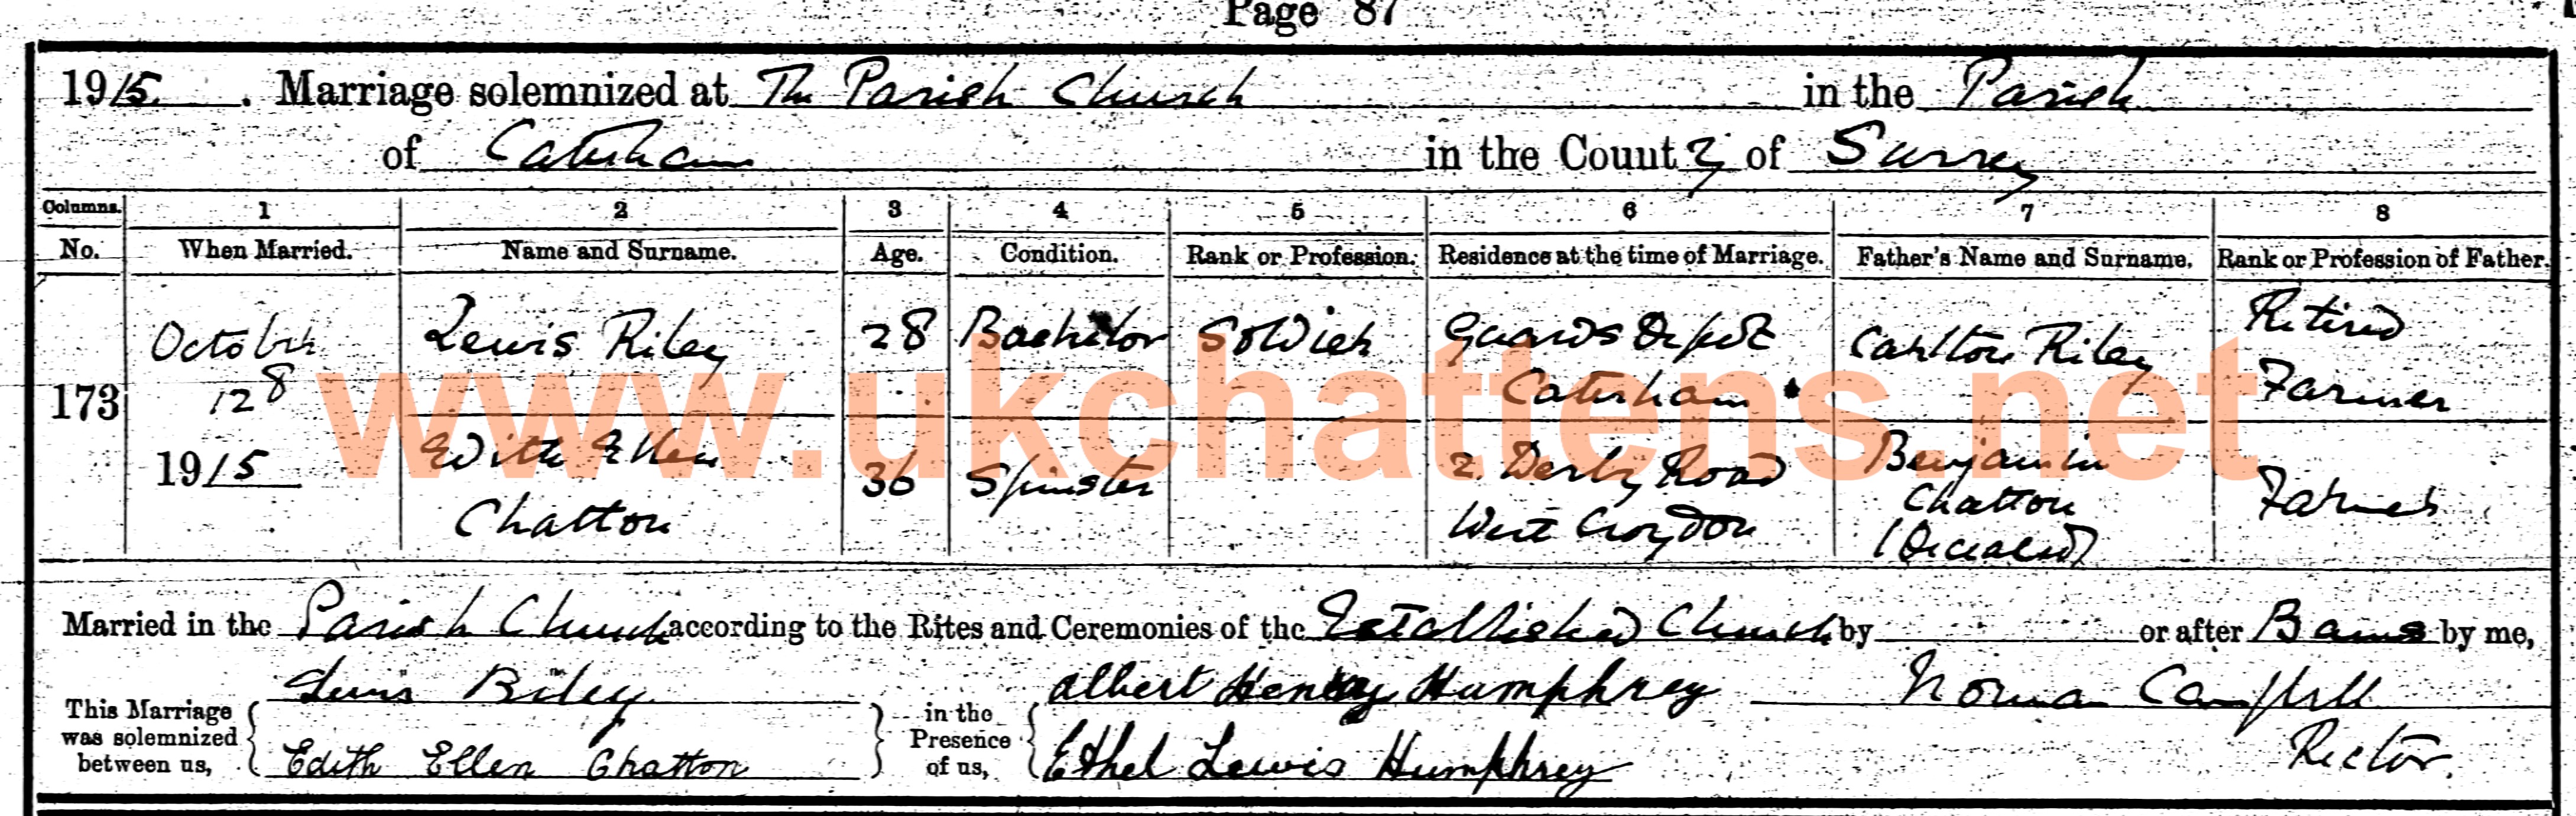 Page 87
1915. Marriage solemnized at The Parish Church in the Parish
of Caterham in the County of Surrey
Columns. 1 2 3 4 5 6 7 8
No. When Married. Name and Surname. Age. Condition. Rank or Profession. Residence at the time of Marriage. Father's Name and Surname. Rank or Profession of Father.
173 October 12 1915 Lewis Riley 28 Bachelor Soldier Guards Depot Caterham Carlton Riley Retired Farmer
Edith Ellen Chatton 36 Spinster 2. Derby Road West Croydon Benjamin Chatton (Deceased) Farmer
www.ukchattens.net
Married in the Parish Church according to the Rites and Ceremonies of the Established Church by or after Banns by me,
This Marriage was solemnized between us, { Lewis Riley } in the Presence of us, { Albert Henry Humphrey Norman Campbell
Edith Ellen Chatton Ethel Lewis Humphrey Rector.